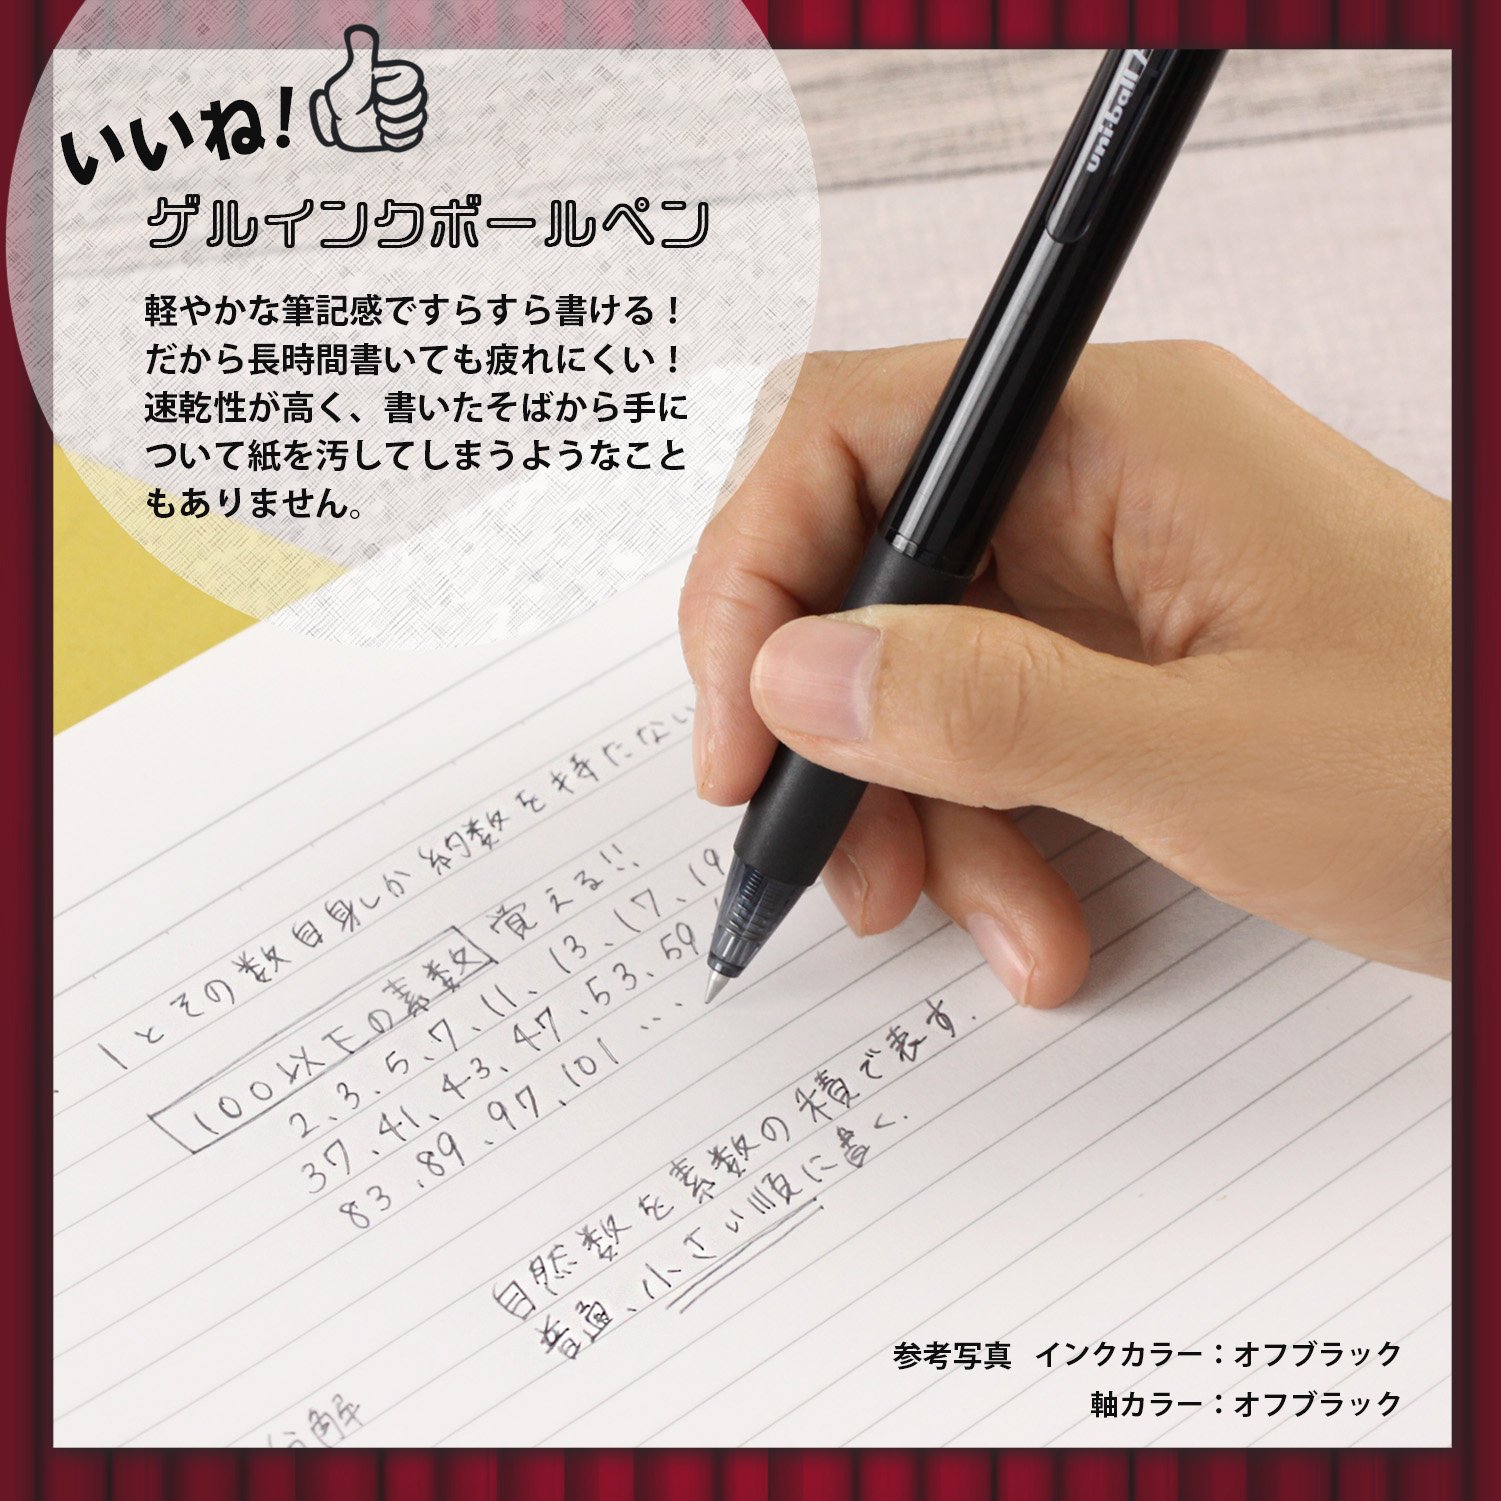 いいね!
ゲルインクボールペン
軽やかな筆記感ですらすら書ける！
だから長時間書いても疲れにくい！
速乾性が高く、書いたそばから手に
ついて紙を汚してしまうようなこと
もありません。
uni-ball
1とその数自身しか約数を持たない
100以下の素数 覚える!!
2、3、5、7、11、13、17、19
37、41、43、47、53、59
83、89、97、101 ...
自然数を素数の積で表す.
普通、小さい順に書く.
分解
参考写真 インクカラー：オフブラック
軸カラー：オフブラック